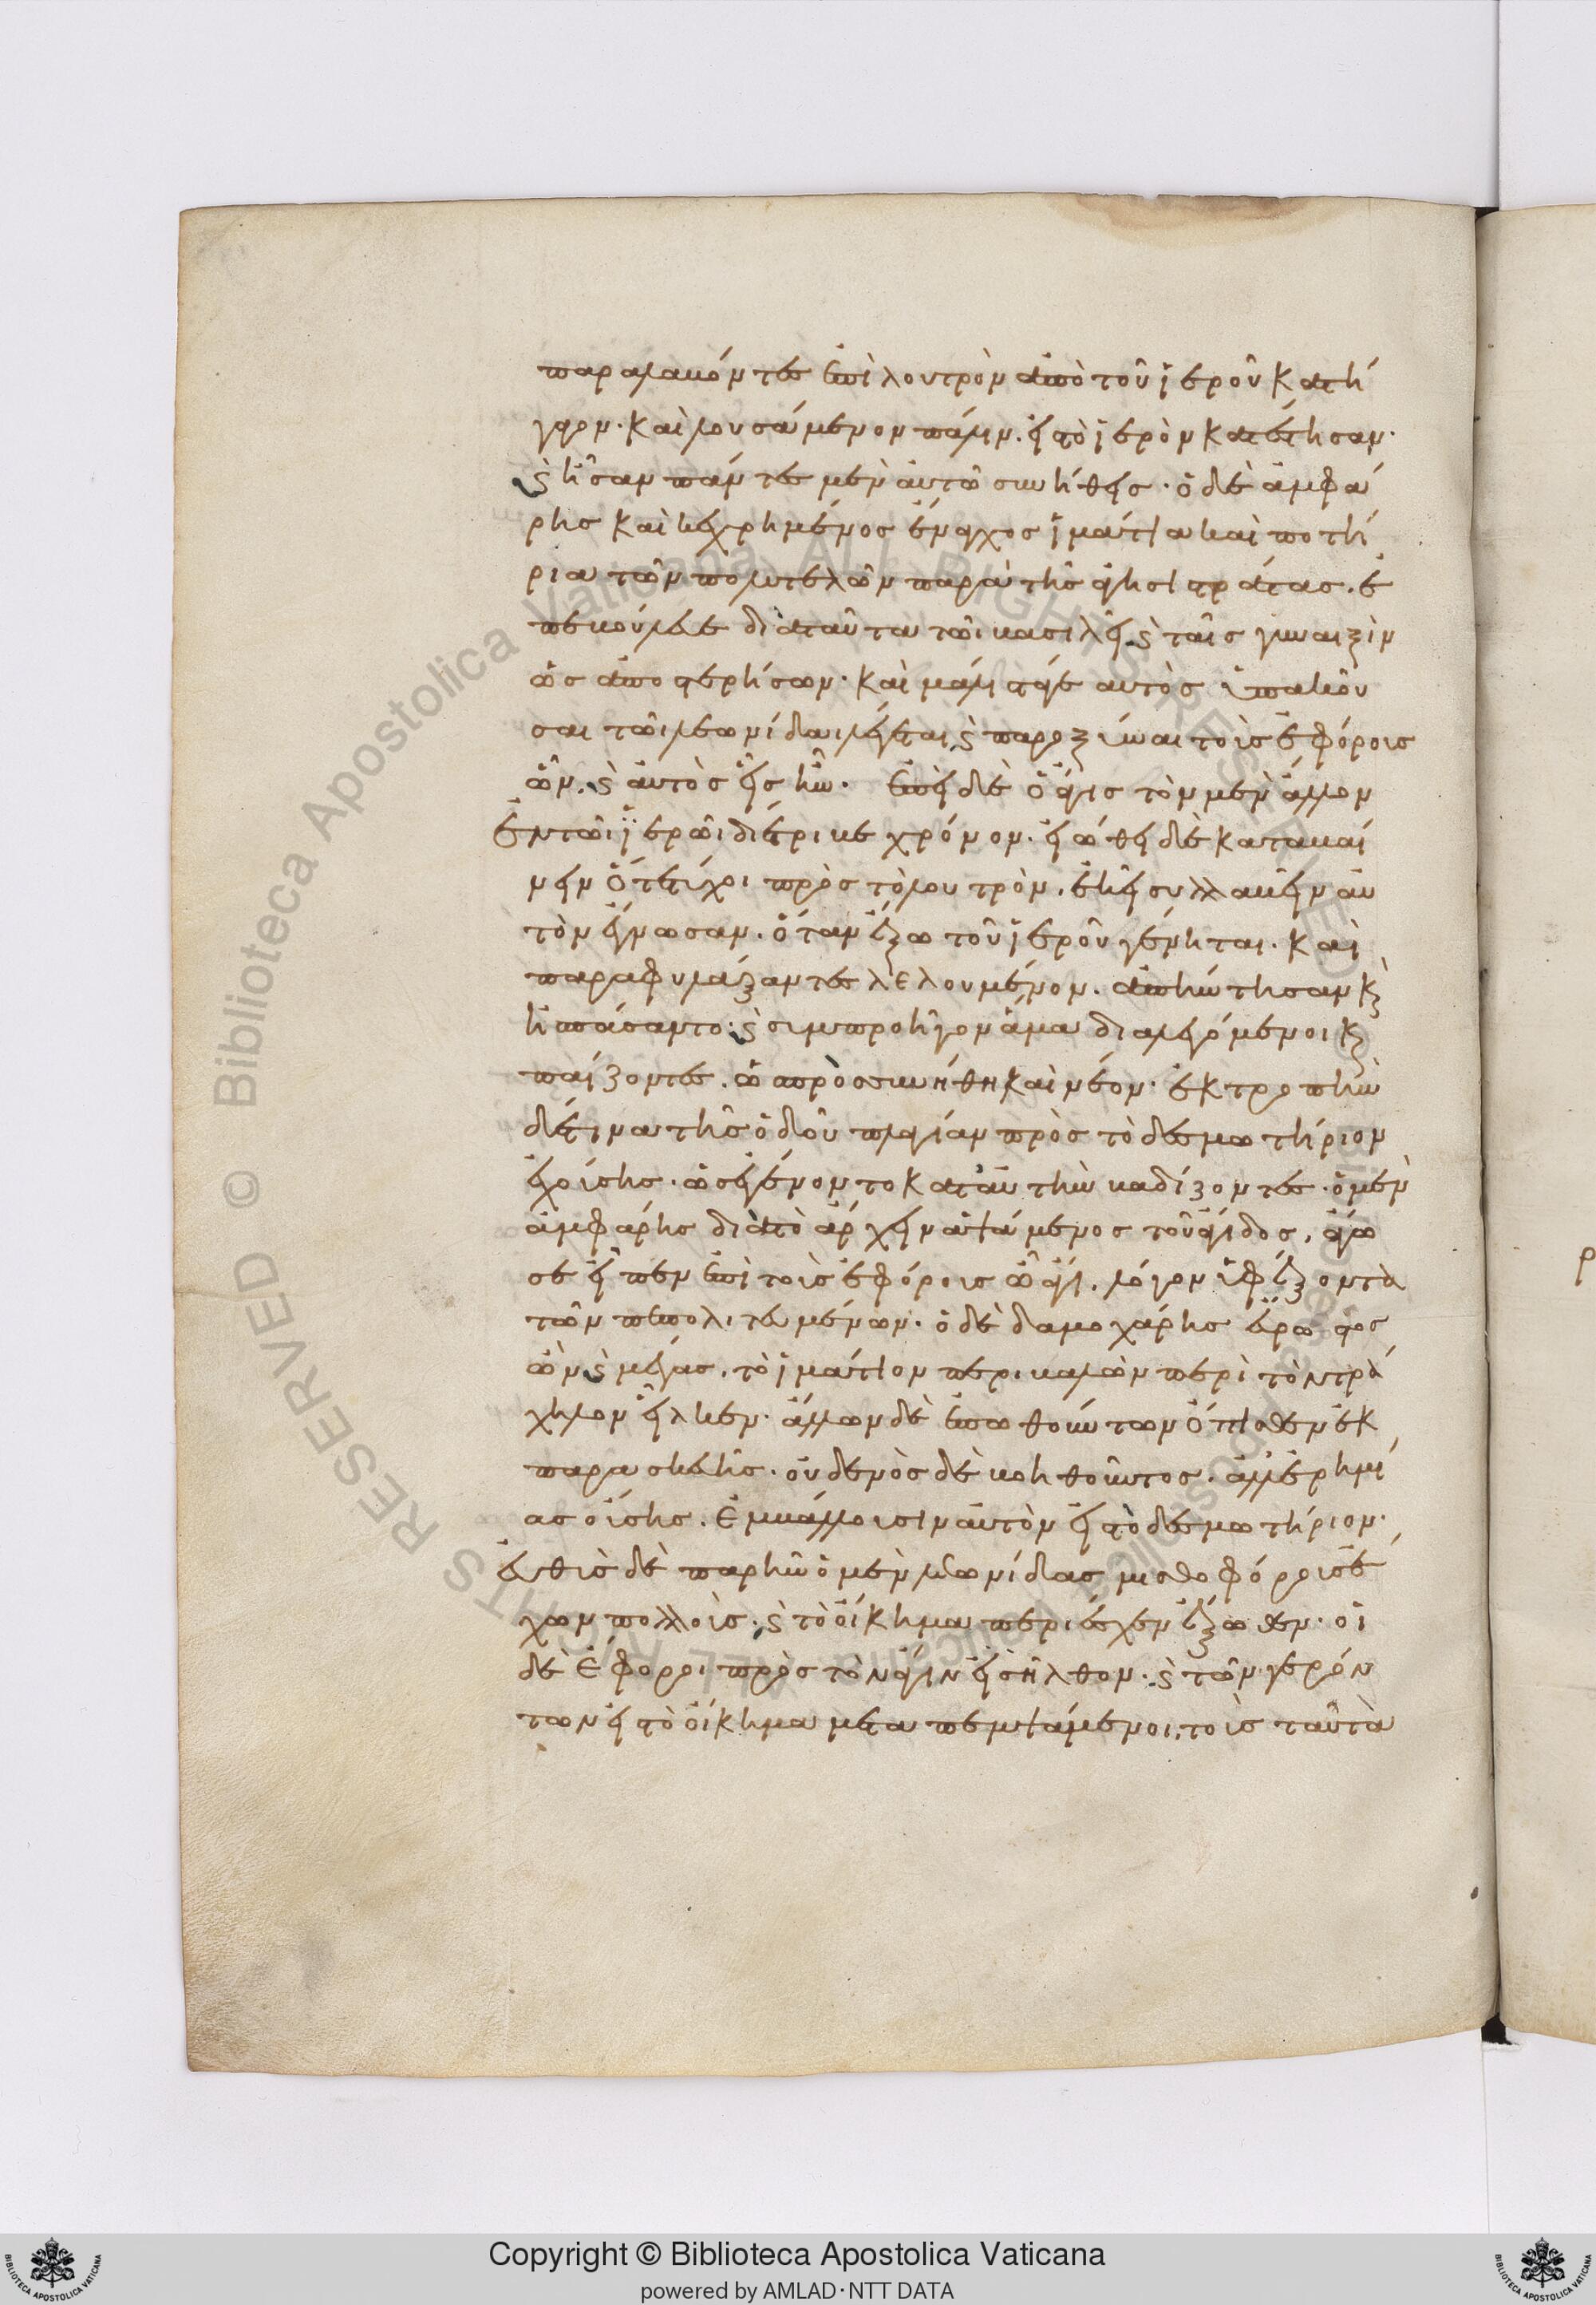 παραλαβόντες ἐπὶ λουτρὸν ἀπὸ τοῦ ἱεροῦ κατῆ
γον· καὶ λουσάμενον πάλιν. εἰς τὸ ἱερὸν κατέστησαν·
καὶ ἦσαν πάντες μὲν αὐτῶ συνήθεις· ὁ δὲ ἀμφά
ρης καὶ κεχρημένος ἔναγχος ἱμάτια καὶ ποτή
ρια τῶν πολυτελῶν παρὰ τῆς ἀγησιστράτας. ἐ
πεβούλευε διὰ ταῦτα τῶι βασιλεῖ καὶ ταῖς γυναιξὶν
ὡς ἀποστερήσων· καὶ μάλιστά γε αυτὸς ὑπακοῦ
σαι τῶι λεωνίδαι λέγεται καὶ παροξύναι τοὺς ἐφόρους
ὧν. καὶ αὐτὸς εἷς ἦν. ἐπεὶ δὲ ὁ ἄγις τὸν μὲν ἄλλον
ἐν τῶι ἱερῶι διέτριβε χρόνον. εἰώθει δὲ καταβαί
νειν ὅτε τύχοι πρὸς τὸ λουτρὸν. ἐκεῖ συλλαβεῖν αὐ
τὸν ἔγνωσαν. ὅταν ἔξω τοῦ ἱεροῦ γένηται. καὶ
παραφυλάξαντες λελουμένον. ἀπήντησαν καὶ
ἠσπάσαντο· καὶ συμπροῆγον ἅμα διαλεγόμενοι καὶ
παίζοντες. ὡς πρὸς συνήθη καὶ νέον· ἐκτροπὴν
δέ τινα τῆς ὁδοῦ πλαγίαν πρὸς τὸ δεσμωτήριον
ἐχούσης. ὡς ἐγένοντο κατ' αὐτὴν βαδίζοντες. ὁ μὲν
ἀμφάρης διὰ τὸ ἄρχειν ἁψάμενος τοῦ ἄγιδος. ἄγω
σε εἶπεν ἐπὶ τοὺς ἐφόρους ὦ ἄγι. λόγον ὑφέξοντα
τῶν πεπολιτευμένων. ὁ δὲ δαμοχάρης εὔρωστος
ὢν καὶ μέγας. τὸ ἱμάτιον περιβαλὼν περὶ τὸν τρά
χηλον εἷλκεν. ἄλλων δὲ ἐπωθούντων ὄπισθεν ἐκ
παρασκευῆς. οὐδενὸς δὲ βοηθοῦντος. ἀλλ' ἐρημί
ας οὔσης. ἐμβάλλουσιν αὐτὸν εἰς τὸ δεσμωτήριον·
εὐθὺς δὲ παρῆν ὁ μὲν λεωνίδας μισθοφόρους ἔ
χων πολλοὺς. καὶ τὸ οἴκημα περιέσχεν ἔξωθεν· οἱ
δὲ ἔφοροι πρὸς τὸν ἄγιν εἰσῆλθον. καὶ τῶν γερόν
των εἰς τὸ οἴκημα μεταπεμψάμενοι. τοὺς ταῦτὰ
Copyright © Biblioteca Apostolica Vaticana
powered by AMLAD·NTT DATA